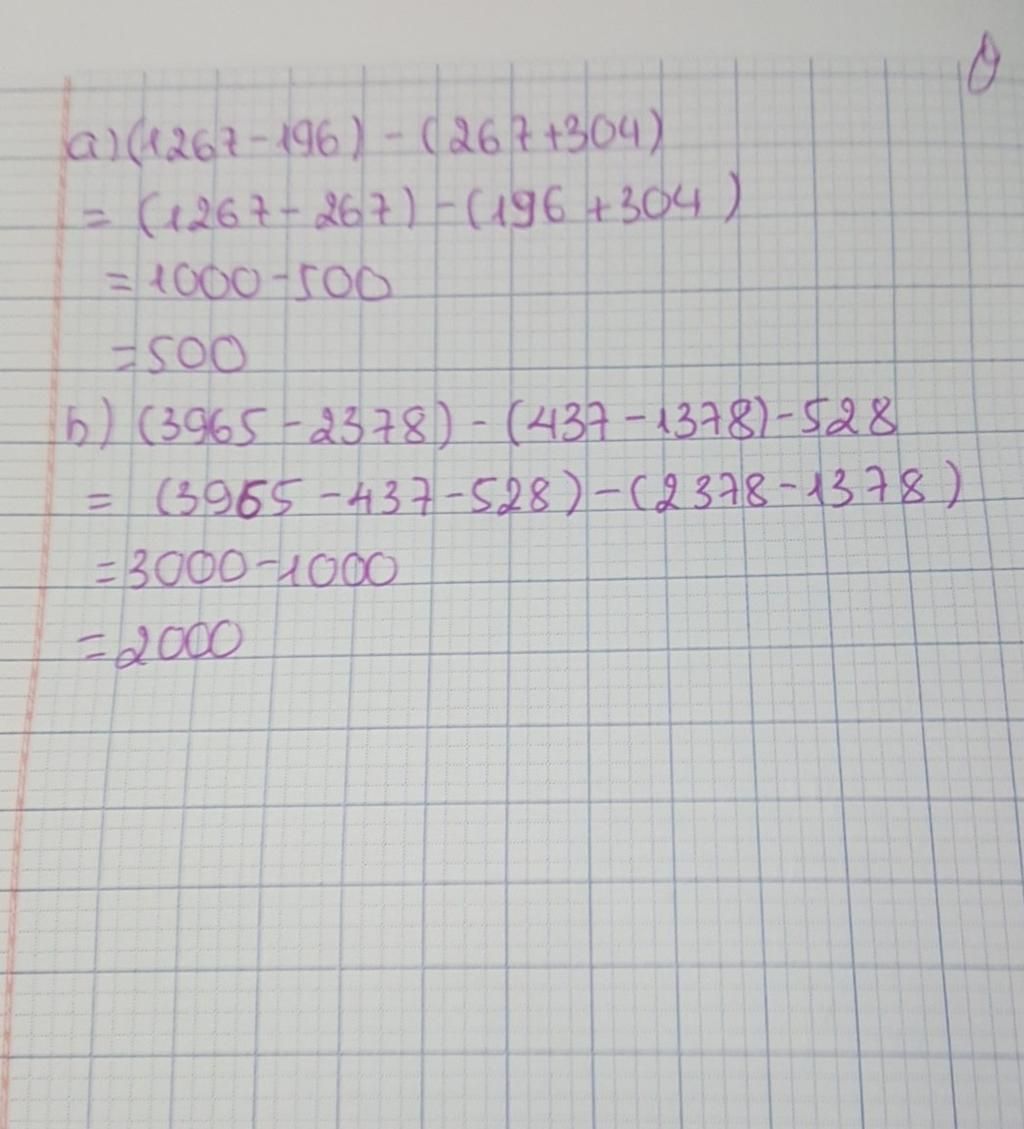 a) (1267-196) - (267+304)
= (1267-267) - (196+304)
= 1000-500
= 500
b) (3965-2378) - (437-1378)-528
= (3965-437-528)-(2378-1378)
= 3000-1000
= 2000